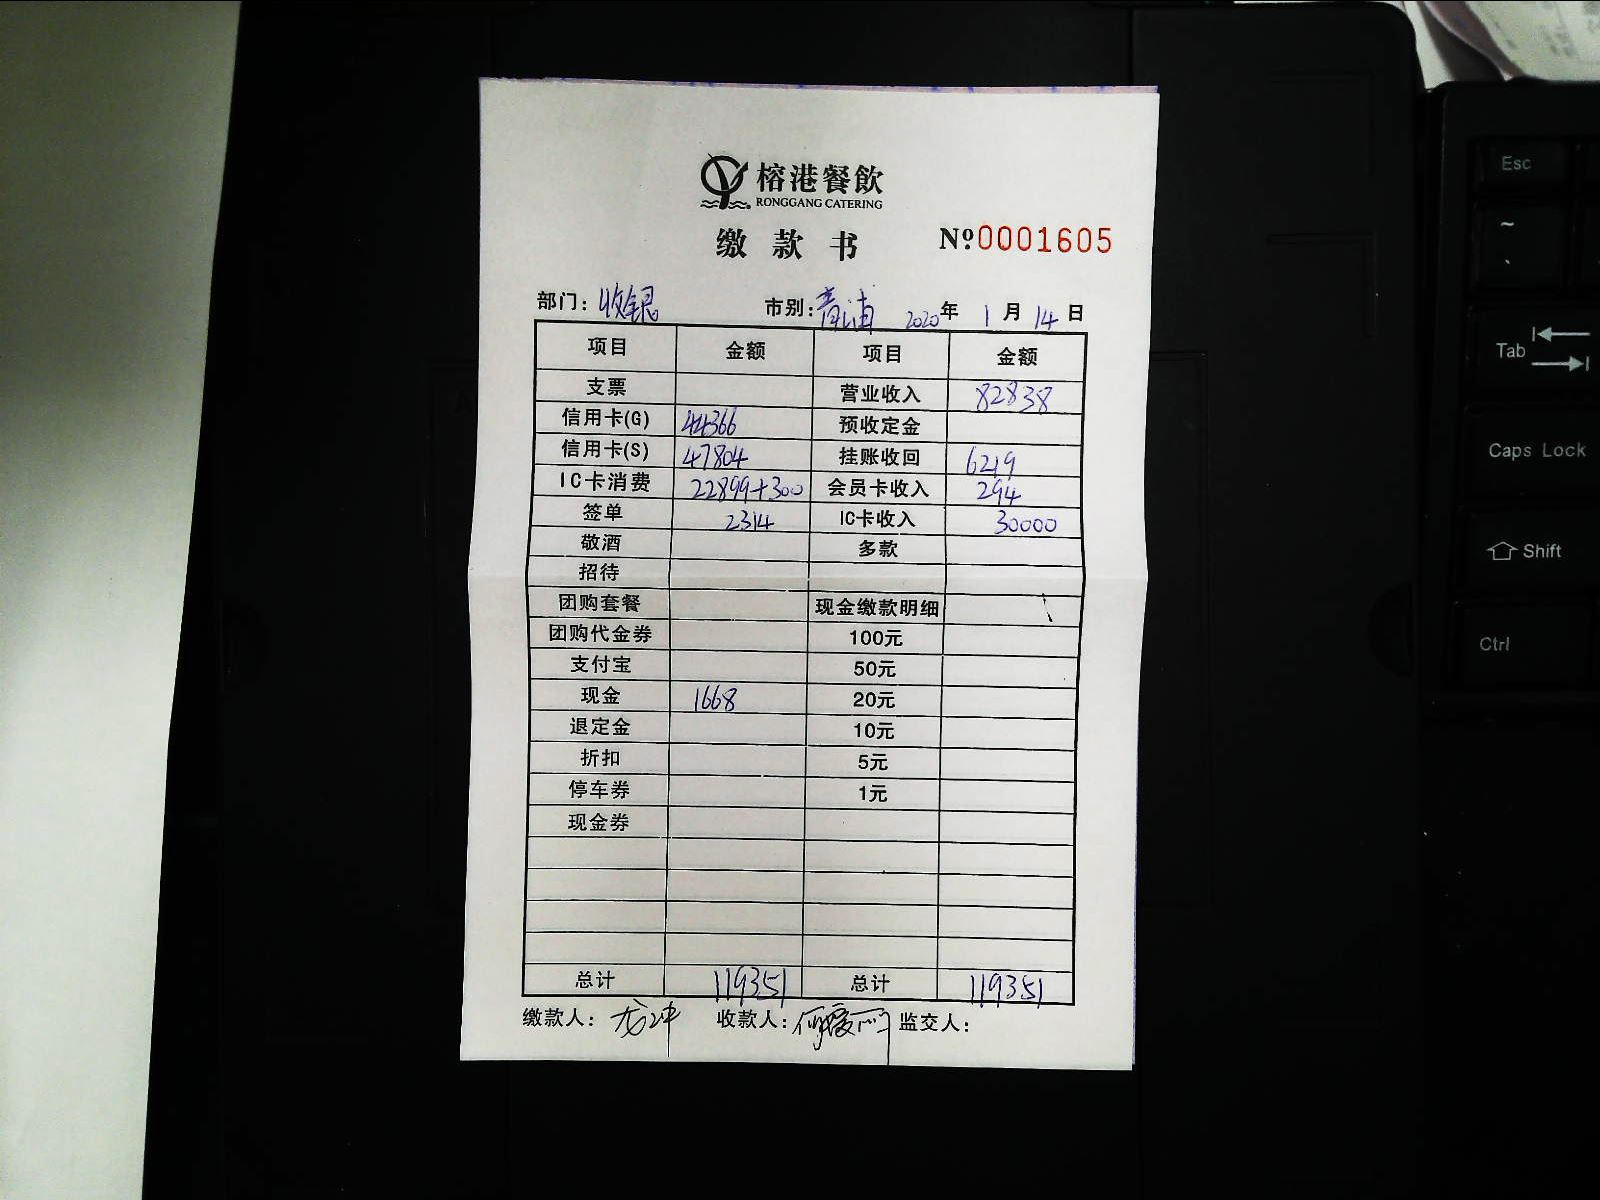 榕港餐飲
RONGGANG CATERING
缴款书 №0001605
部门：收银 市别：青浦 2020年 1月 14日
项目 金额 项目 金额
支票 营业收入 82838
信用卡(G) 44366 预收定金
信用卡(S) 47804 挂账收回 6219
IC卡消费 22899+300 会员卡收入 294
签单 2314 IC卡收入 30000
敬酒 多款
招待
团购套餐 现金缴款明细
团购代金券 100元
支付宝 50元
现金 1668 20元
退定金 10元
折扣 5元
停车券 1元
现金券
总计 119351 总计 119351
缴款人： 收款人： 监交人：
Esc
~
Tab
Caps Lock
Shift
Ctrl